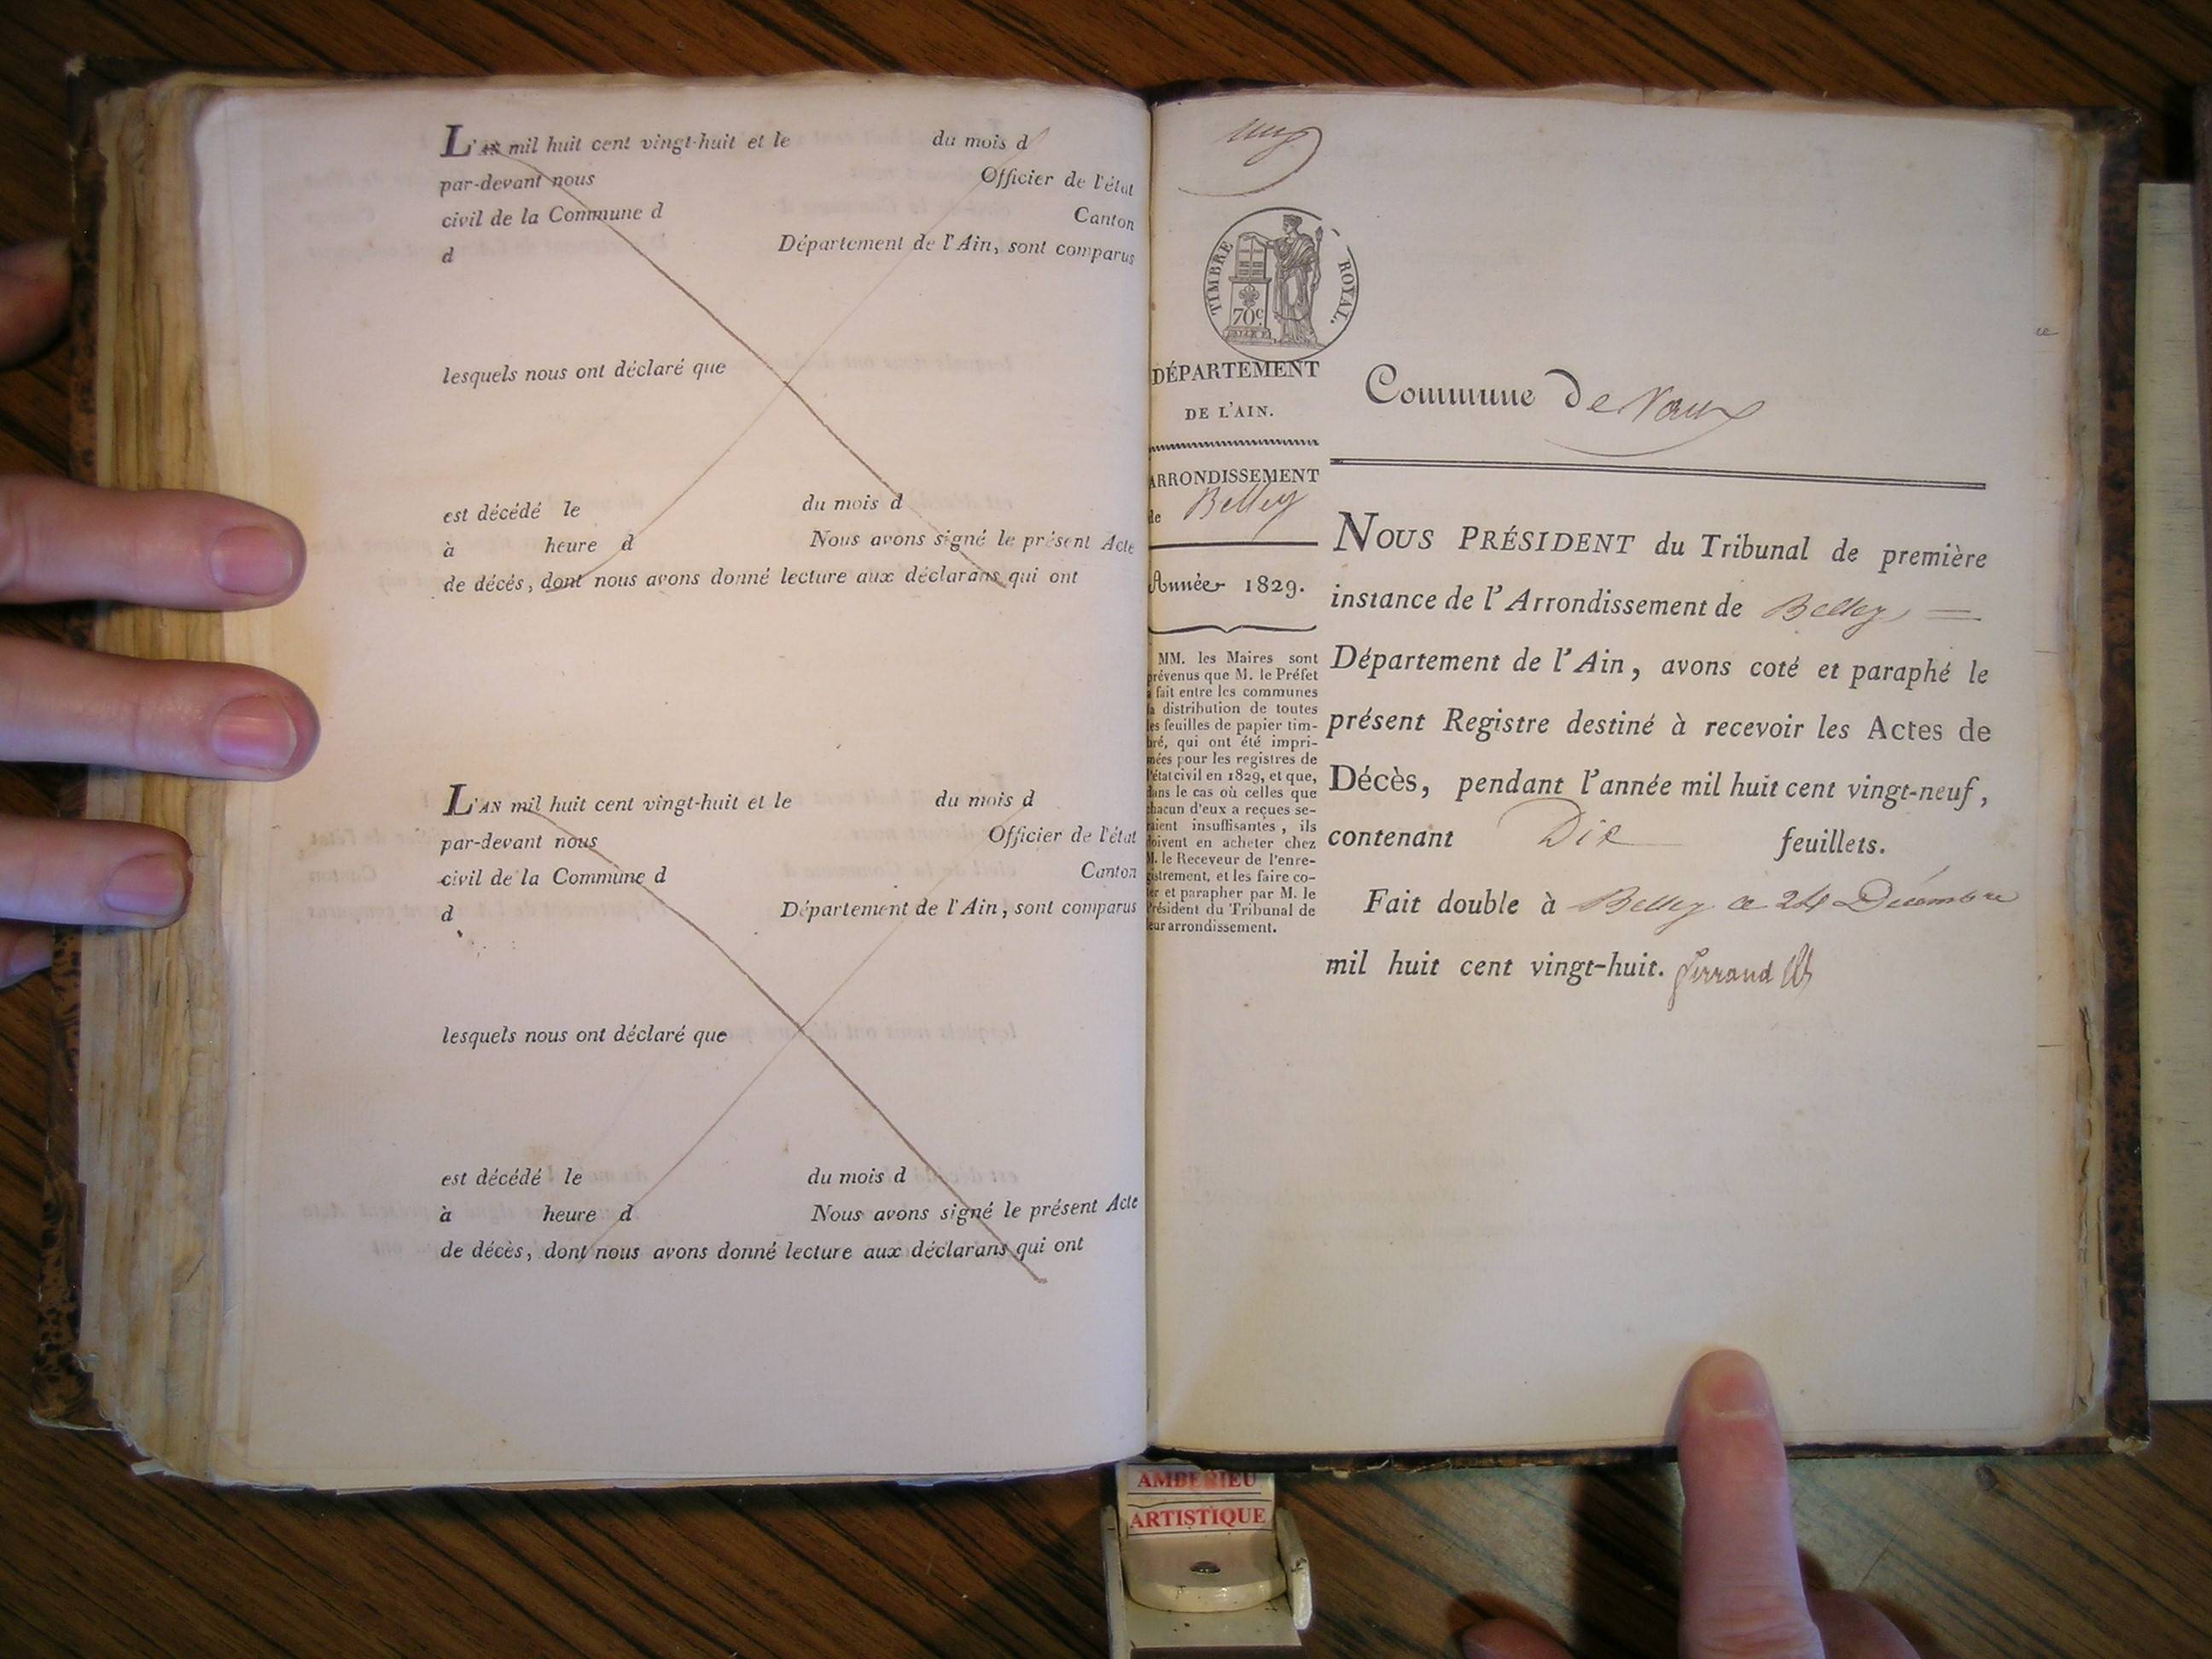 L'AN mil huit cent vingt-huit et le du mois d
par-devant nous Officier de l'état
civil de la Commune d Canton
d Département de l'Ain, sont comparus
lesquels nous ont déclaré que
est décédé le du mois d
à heure d Nous avons signé le présent Acte
de décés, dont nous avons donné lecture aux déclarans qui ont
L'AN mil huit cent vingt-huit et le du mois d
par-devant nous Officier de l'état
civil de la Commune d Canton
d Département de l'Ain, sont comparus
lesquels nous ont déclaré que
est décédé le du mois d
à heure d Nous avons signé le présent Acte
de décès, dont nous avons donné lecture aux déclarans qui ont
TIMBRE ROYAL.
70c.
DÉPARTEMENT
DE L'AIN.
ARRONDISSEMENT
de Belley
Année 1829.
MM. les Maires sont
prévenus que M. le Préfet
a fait entre les communes
la distribution de toutes
les feuilles de papier tim-
bré, qui ont été impri-
mées pour les registres de
l'état civil en 1829, et que,
dans le cas où celles que
chacun d'eux a reçues se-
raient insuffisantes, ils
doivent en acheter chez
M. le Receveur de l'enre-
gistrement, et les faire co-
ter et parapher par M. le
Président du Tribunal de
leur arrondissement.
Commune De Vaux
NOUS PRÉSIDENT du Tribunal de première
instance de l'Arrondissement de Belley =
Département de l'Ain, avons coté et paraphé le
présent Registre destiné à recevoir les Actes de
Décès, pendant l'année mil huit cent vingt-neuf,
contenant Dix feuillets.
Fait double à Belley ce 24 Décembre
mil huit cent vingt-huit. Ferrand
AMBERIEU
ARTISTIQUE